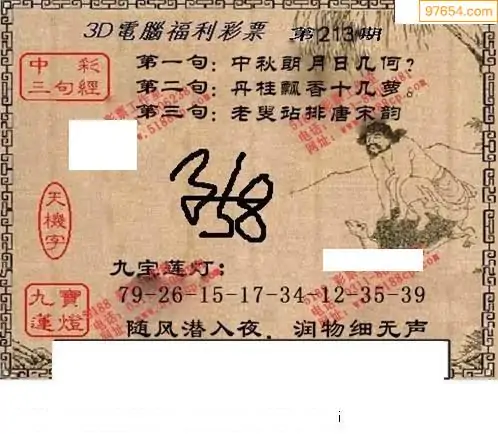 97654.com
3D電腦福利彩票 第213期
中彩
三句經
第一句：中秋朗月日几何？
第二句：丹桂飘香十几萝。
第三句：老叟站排唐宋韵
天機字
358
九宝莲灯：
九寶
蓮燈
79-26-15-17-34-12-35-39
随风潜入夜．润物细无声
i